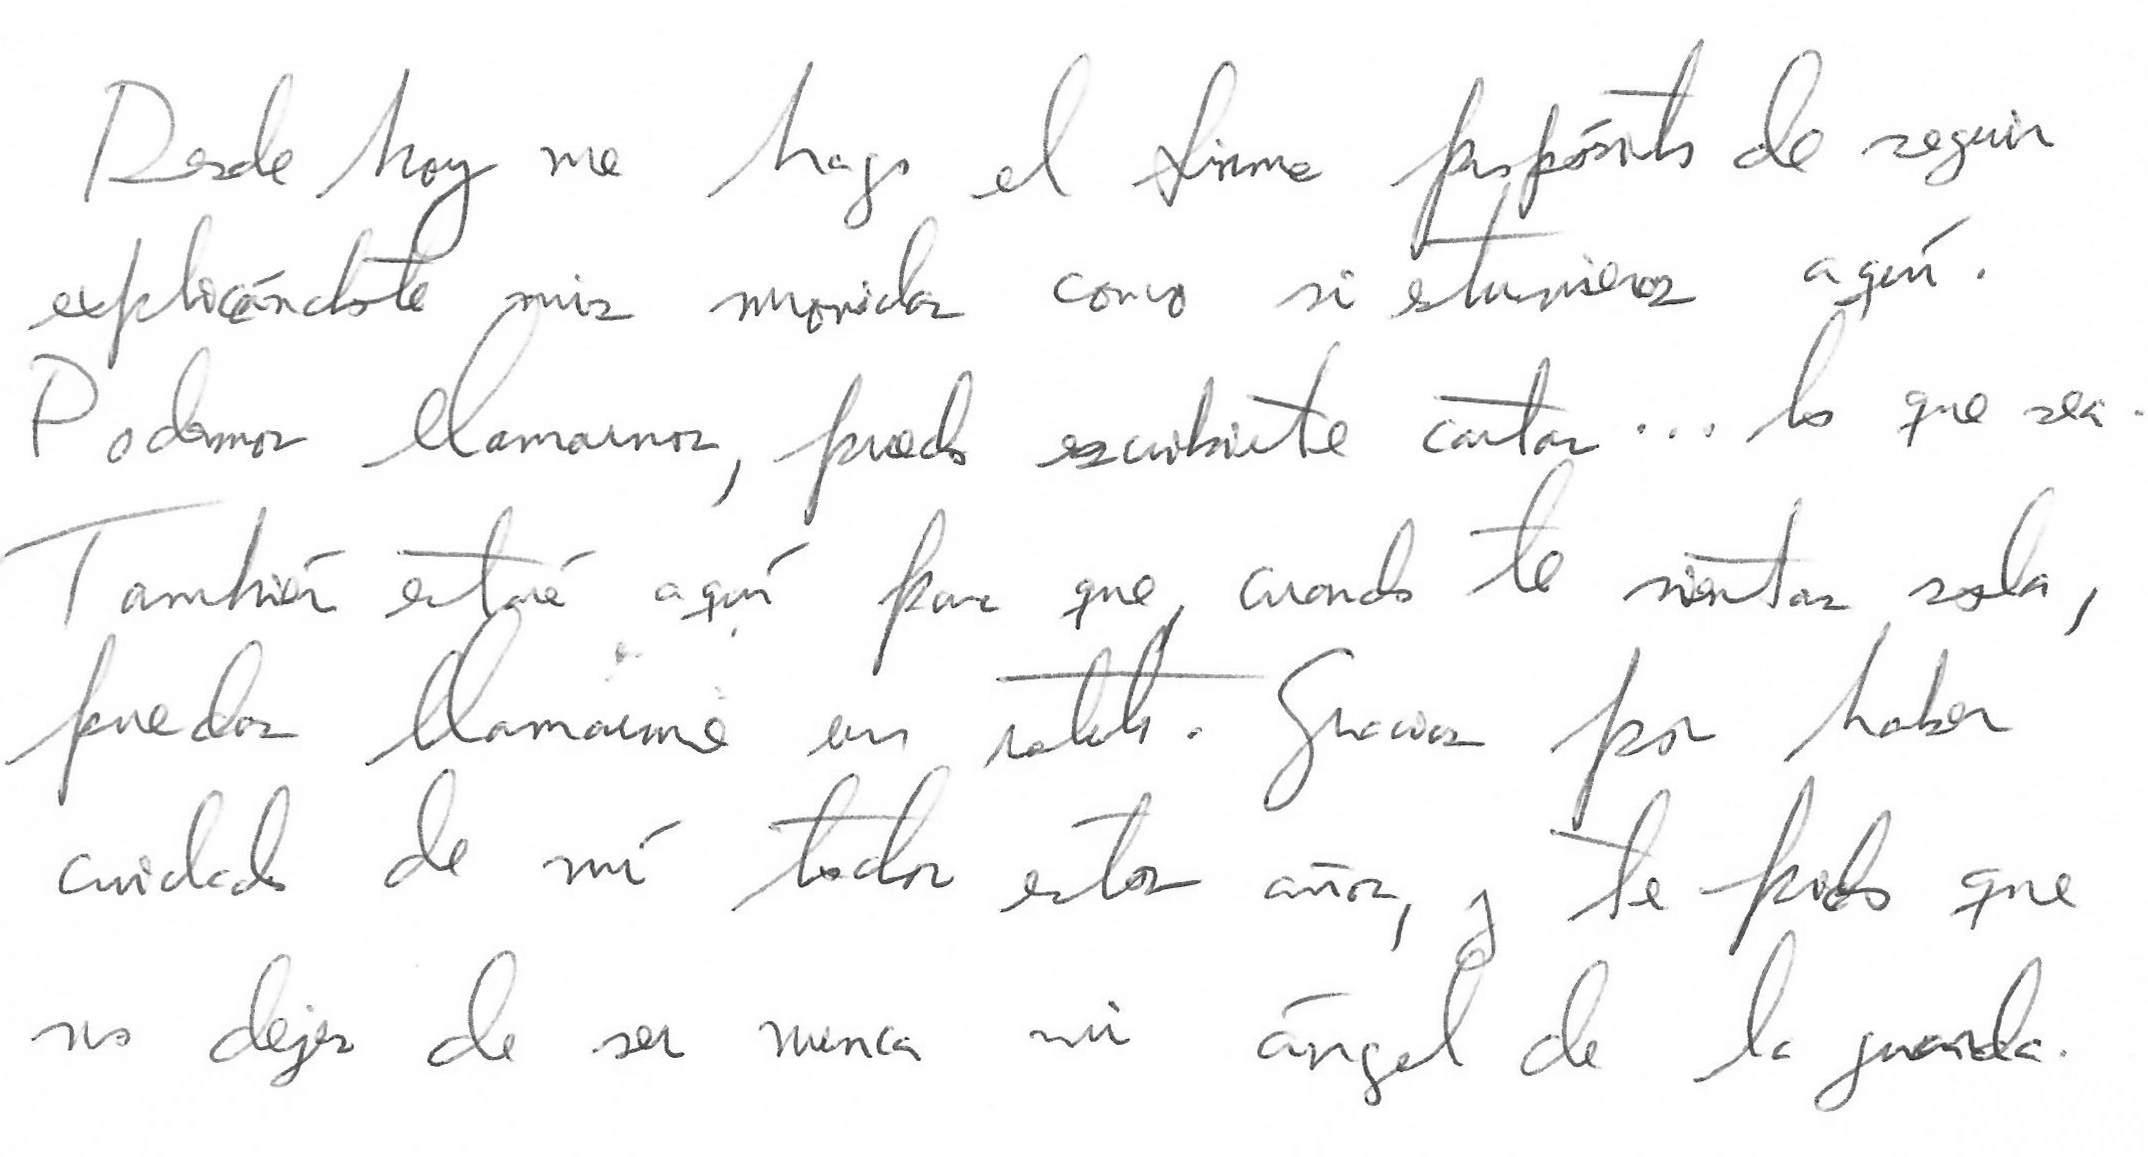 Desde hoy me hago el firme propósito de seguir
explicándote mis movidas como si estuvieras aquí.
Podemos llamarnos, puedo escribirte cartas... lo que sea.
También estaré aquí par que, cuando te sientas sola,
puedas llamarme un ratito. Gracias por haber
cuidado de mí todos estos años, y te pido que
no dejes de ser nunca mi ángel de la guarda.